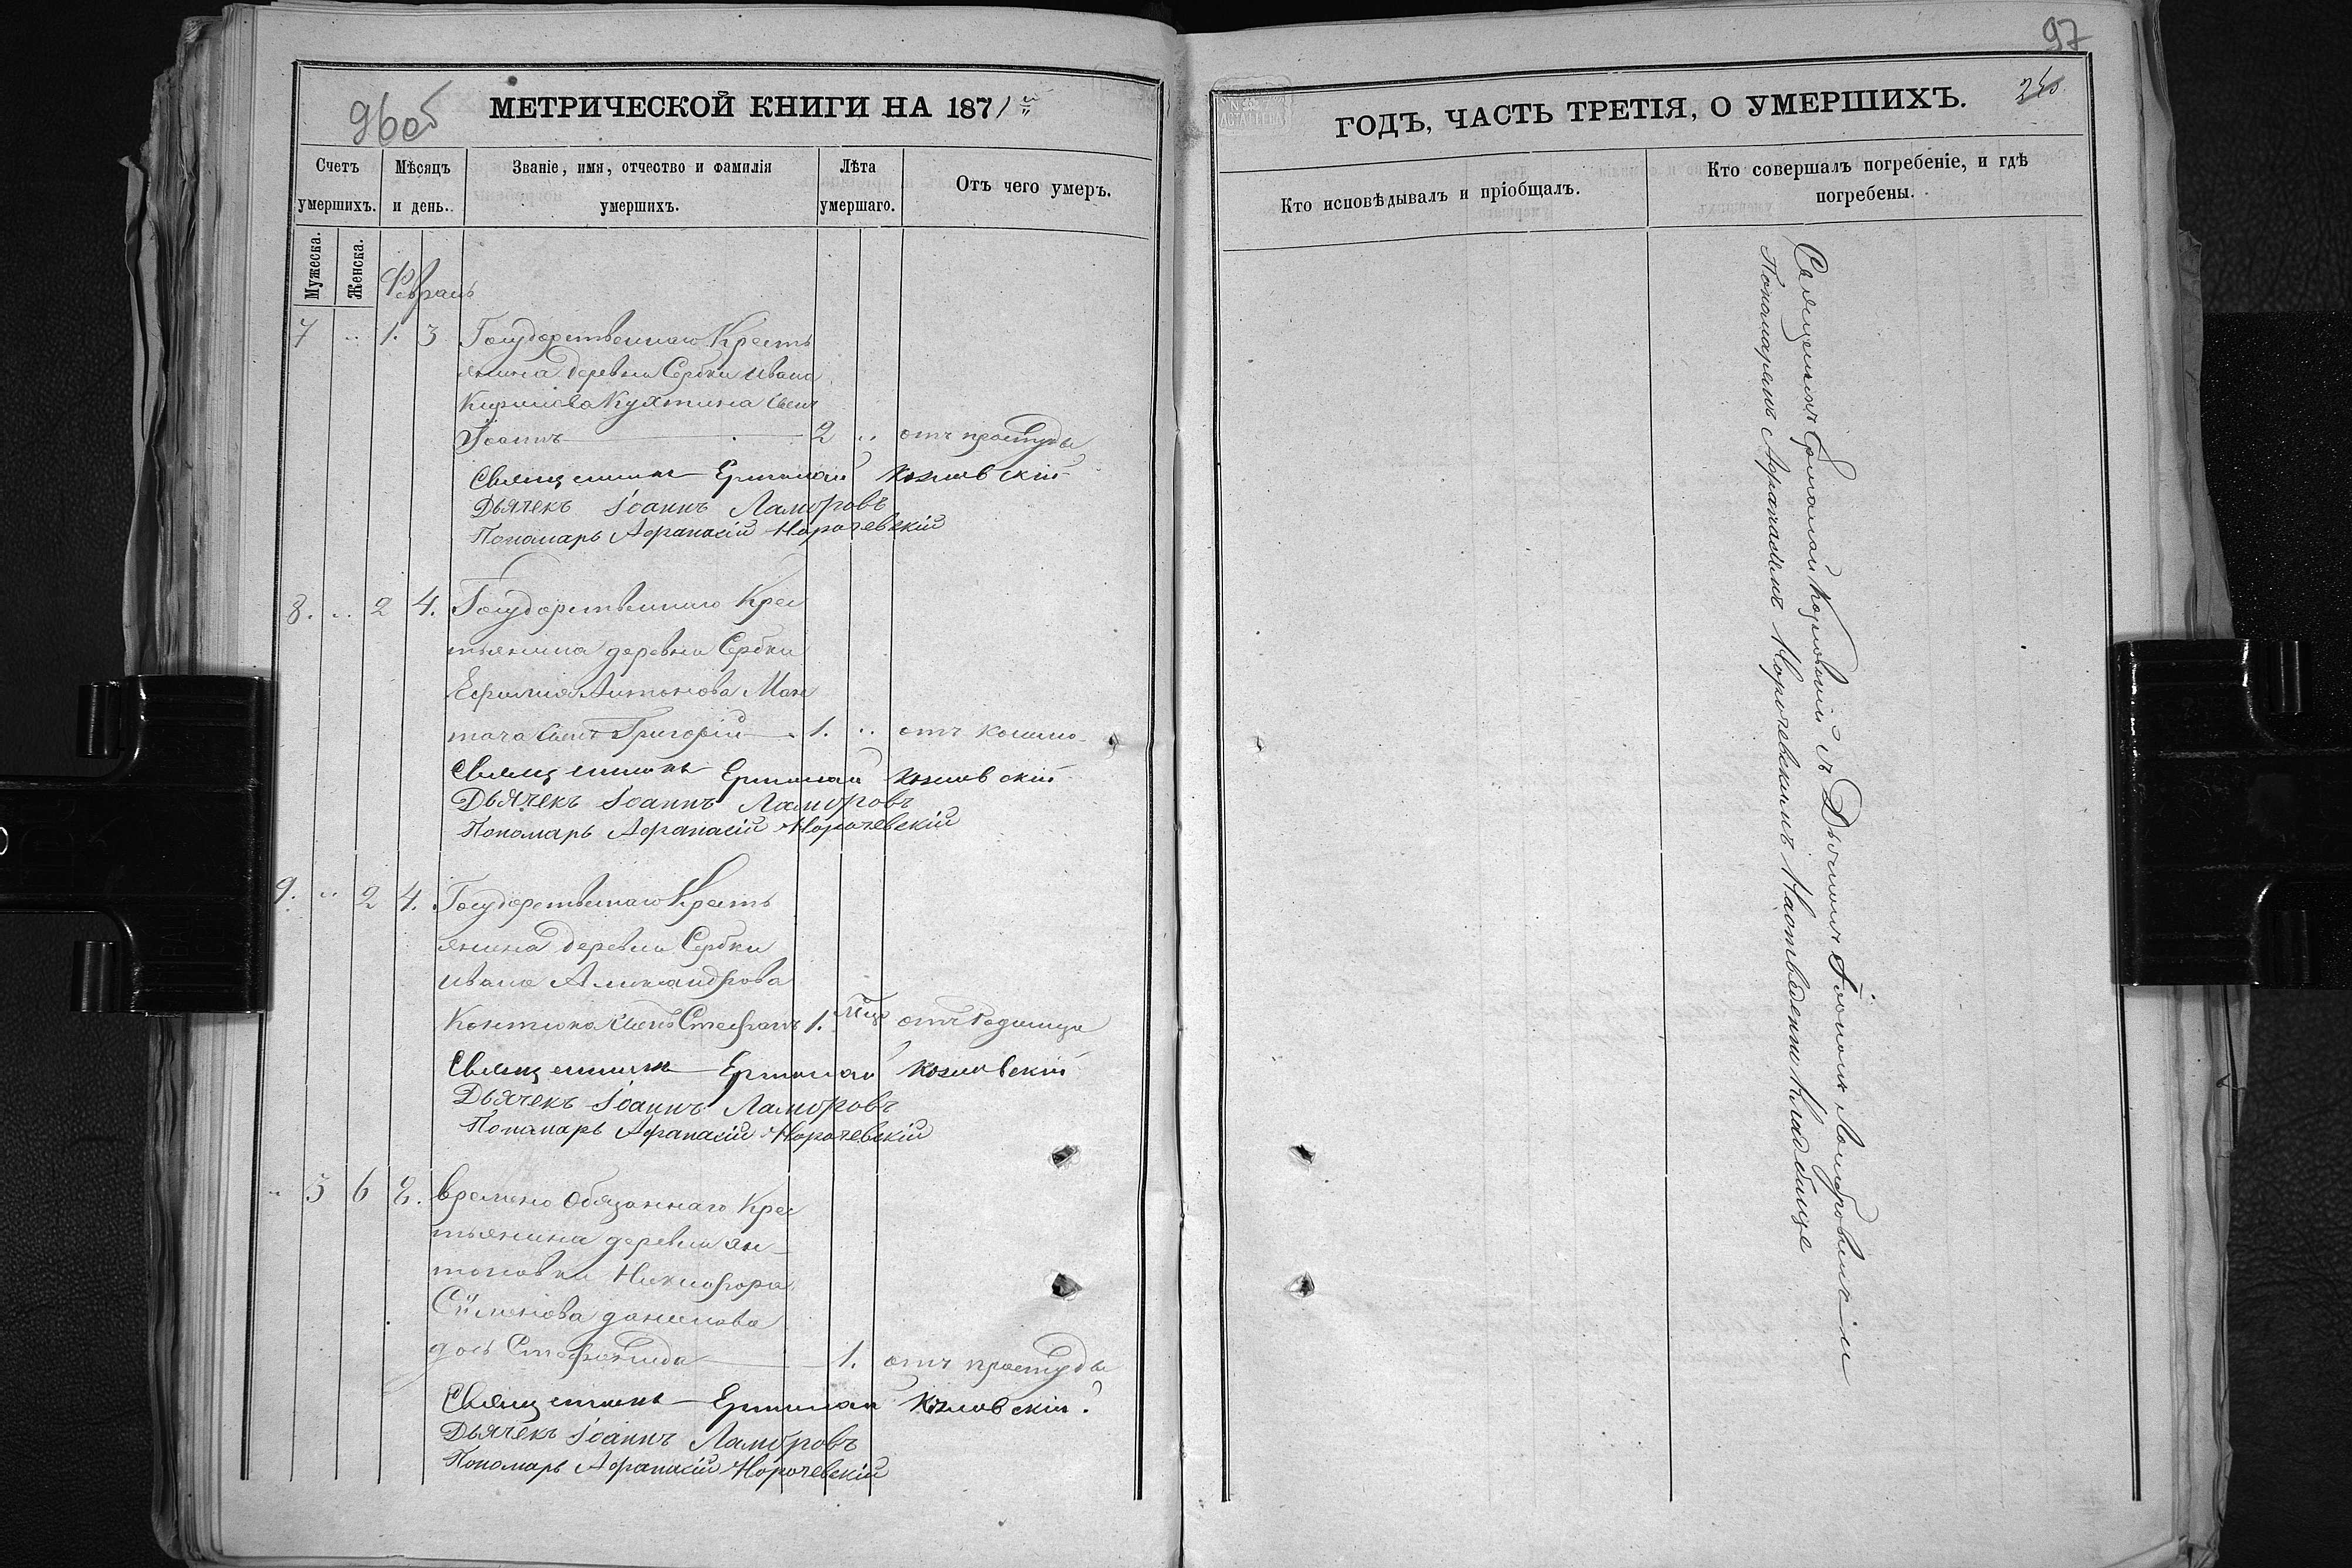 96об
МЕТРИЧЕСКОЙ КНИГИ НА 1871й
Счетъ умершихъ.
Мужеска.
Женска.
Мѣсяцъ и день.
Званіе, имя, отчество и фамилія умершихъ.
Лѣта умершаго.
Отъ чего умеръ.
Февраль
7 .. 1. 3 Государственнаго Кресть
янина деревни Сербки Ивана
Кирилова Кухтина сынъ
Іоаннъ 2 .. отъ простуды
Священникъ Ермолай Козловскій
Дьячекъ Іоаннъ Ламбровъ
Пономарь Афанасій Норочевскій
8. .. 2 4. Государственнаго Крес
тьянина деревни Сербки
Ефимія Антонова
сынъ Григорій 1. .. отъ
Священникъ Ермолай Козловскій
Дьячекъ Іоаннъ Ламбровъ
Пономарь Афанасій Норочевскій
9. .. 2 4. Государственнаго Кресть
янина деревни Сербки
Ивана Александрова
сынъ Стефанъ 1. Мца отъ Родимца
Священникъ Ермолай Козловскій
Дьячекъ Іоаннъ Ламбровъ
Пономарь Афанасій Норочевскій
.. 3 6 8. Времено Обязаннаго Крес
тьянина деревни Ан-
тоновки Никифора
Сѵменова Данилова
дочь Стефанида 1. отъ простуды
Священникъ Ермолай Козловскій.
Дьячекъ Іоаннъ Ламбровъ
Пономарь Афанасій Норочевскій
97
ГОДЪ, ЧАСТЬ ТРЕТІЯ, О УМЕРШИХЪ.
Кто исповѣдывалъ и пріобщалъ.
Кто совершалъ погребеніе, и гдѣ погребены.
Священникъ Ермолай Козловскій съ Дьячкомъ Іоаномъ Ламбровымъ и
Пономаремъ Афанасіемъ Норочевскимъ На отведеном Кладбище